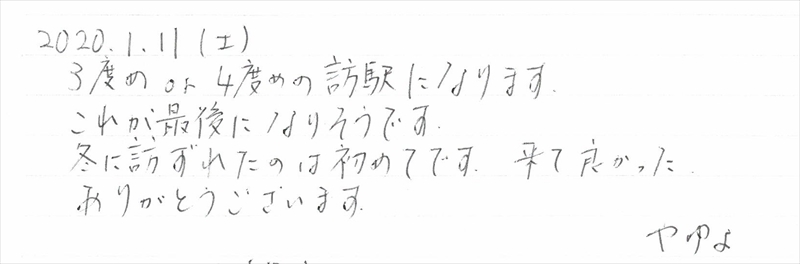 2020.1.11(土)
3度め or 4度めの訪駅になります.
これが最後になりそうです.
冬に訪ずれたのは初めてです. 来て良かった.
ありがとうございます.
やゆよ